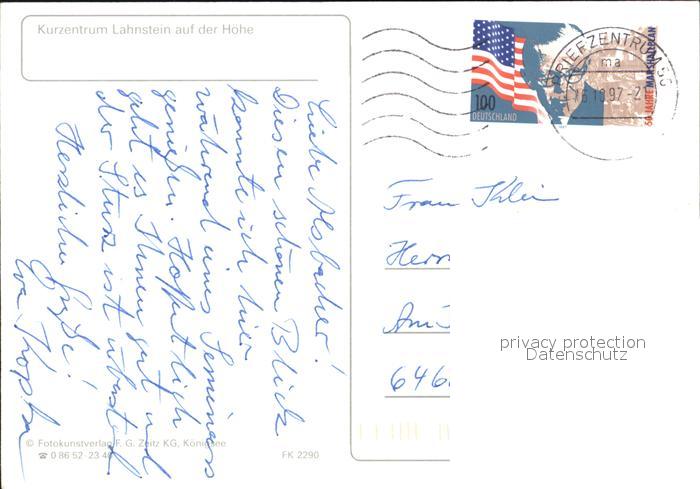 Kurzentrum Lahnstein auf der Höhe
Liebe Alsbacher!
Diesen schönen Blick
konnte ich hier
während eines Seminars
genießen. Hoffentlich
geht es Ihnen gut und
der Sturz ist überstanden
Herzliche Grüße!
Eva
© Fotokunstverlag F. G. Zeitz KG, Königsee
☎ 0 86 52 - 23 4
FK 2290
100
DEUTSCHLAND
50 JAHRE MARSHALLPLAN
BRIEFZENTRUM 56
ma
16.10.97-21
Frau Klein
Herr
Am
646
privacy protection
Datenschutz